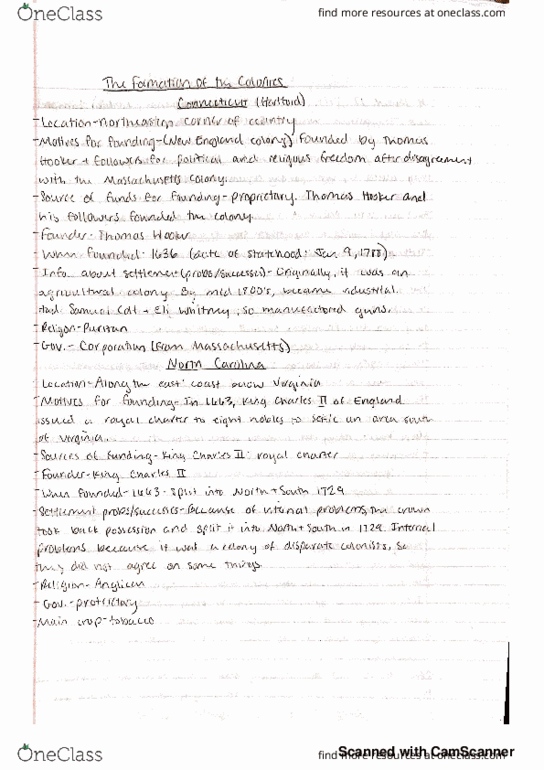 OneClass
find more resources at oneclass.com
The Formation of the Colonies
Connecticut (Hartford)
-Location-northeastern corner of country
-Motives for founding-(New England colony) founded by Thomas
Hooker + followers for political and religious freedom after disagreement
with the Massachusetts colony.
-Source of funds for founding-proprietary. Thomas Hooker and
his followers founded the colony.
-Founder-Thomas Hooker
-When founded-1636 (date of statehood: Jan 9, 1788)
-Info about settlement (probs/successes)-Originally, it was an
agricultural colony. By mid 1800's, became industrial.
Had Samuel Colt + Eli Whitney, so manufactored guns.
-Religion-Puritan
-Gov.-Corporation (from Massachusetts)
North Carolina
-Location-Along the east coast below Virginia
-Motives for founding-In 1663, King Charles II of England
issued a royal charter to eight nobles to settle an area south
of Virginia.
-Sources of funding-King Charles II: royal charter
-Founder-King Charles II
-When founded-1663-Split into North + South 1729
-Settlement probs/successes-Because of internal problems, the crown
took back possession and split it into North + South in 1729. Internal
problems because it was a colony of disparate colonists, so
they did not agree on some things.
-Religion-Anglican
-Gov.-
-Main crop-tobacco
OneClass
find more resources at oneclass.com
Scanned with CamScanner